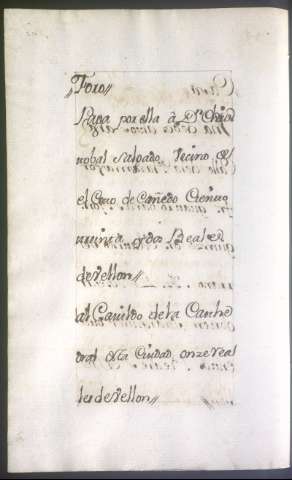 Foro
Paga por ella à Dn Chris
tobal Salgado, Vecino de
el Coto de Cañedo Ciento
quinze y dos Reales
de vellon
al Cavildo de la Cathe
dral esta Ciudad, onze real
les de vellon